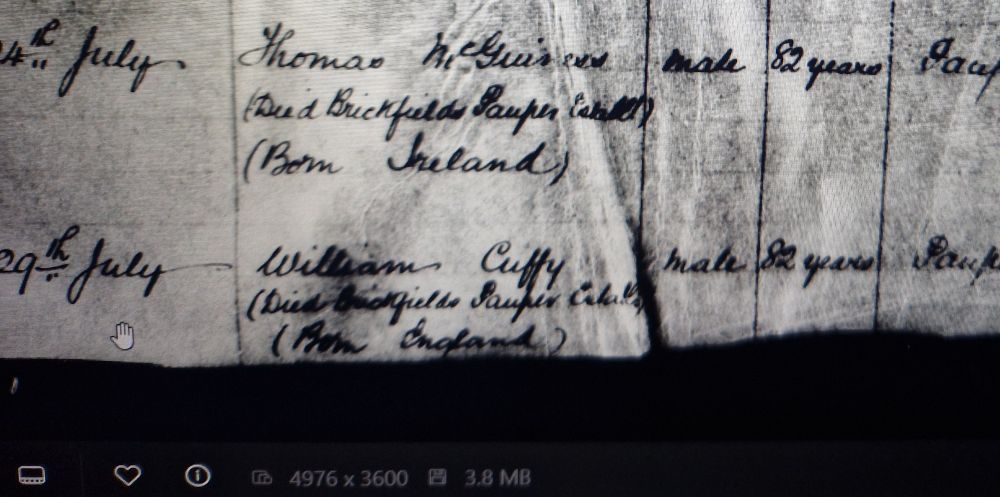 24th July Thomas McGuiness male 82 years Paup
(Died Brickfields Pauper Establt)
(Born Ireland)
29th July William Cuffy male 82 years Paup
(Died Brickfields Pauper Establt)
(Born England)
4976 x 3600 3.8 MB